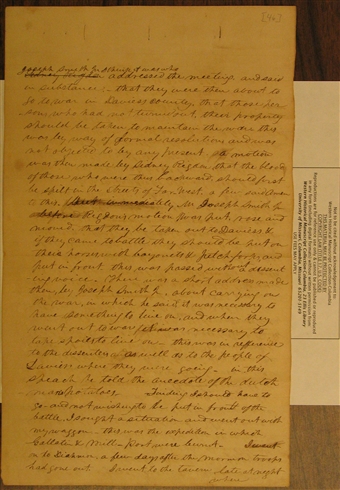 [94]
Joseph Smith Jr I think it was who
Sidney Rigdon addressed the meeting and said
in substance - that they were then about to
go to war in Daviess county, that those per
sons who had not turned out their property
should be taken to maintain the war. this
was by way of formal resolution and was
not objected to by any present. A motion
was then made by Sidney Rigdon, that the blood
of those who were thus backward should first
be spilt in the streets of Far West, a few said Amen
to this. But immediately Mr Joseph Smith Jr
before Rigdons motion was put, rose and
moved, that they be taken out to Daviess &
if they came to battle they should be put on
their horses with bayonets & pitch forks and
put in front this was passed without a dissent
ing voice. There was a short address made
then, by Joseph Smith Jr about carrying on
the war, in which he said it was necessary to
have something to live on, and when they
went out to war it was necessary to
take spoils to live on - this was in reference
to the dissenters as well as to the people of
Daviess where they were going - in this
speech he told the anecdote of the dutch
man's potatoes. Finding I should have to
go and not wishing to be put in front of the
battle I sought a situation and went out with
my waggon - this was the expedition in which
Gallatin & Millport were burnt. I went
to Richmon a few days after the Mormon troops
had gone out. I went to the Tavern late at night
where